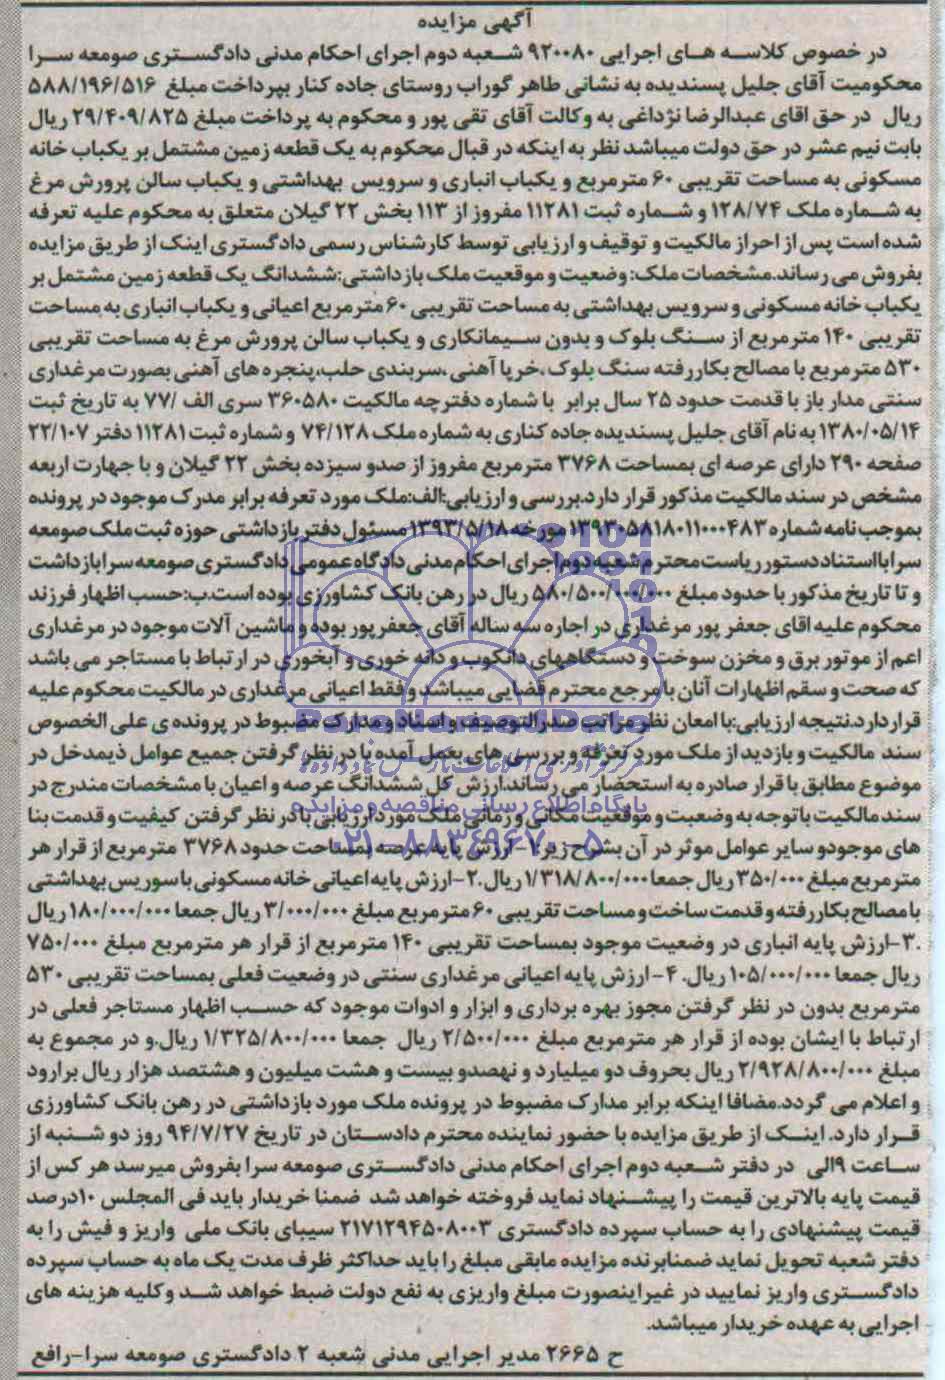 آگهی مزایده
در خصوص کلاسه های اجرایی ۹۲۰۰۸۰ شعبه دوم اجرای احکام مدنی دادگستری صومعه سرا
محکومیت آقای جلیل پسندیده به نشانی طاهر گوراب روستای جاده کنار بپرداخت مبلغ ۵۸۸/۱۹۶/۵۱۶
ریال در حق اقای عبدالرضا نژداغی به وکالت آقای تقی پور و محکوم به پرداخت مبلغ ۲۹/۴۰۹/۸۲۵ ریال
بابت نیم عشر در حق دولت میباشد نظر به اینکه در قبال محکوم به یک قطعه زمین مشتمل بر یکباب خانه
مسکونی به مساحت تقریبی ۶۰ مترمربع و یکباب انباری و سرویس بهداشتی و یکباب سالن پرورش مرغ
به شماره ملک ۱۲۸/۷۴ و شماره ثبت ۱۱۲۸۱ مفروز از ۱۱۳ بخش ۲۲ گیلان متعلق به محکوم علیه تعرفه
شده است پس از احراز مالکیت و توقیف و ارزیابی توسط کارشناس رسمی دادگستری اینک از طریق مزایده
بفروش می رساند.مشخصات ملک: وضعیت و موقعیت ملک بازداشتی:ششدانگ یک قطعه زمین مشتمل بر
یکباب خانه مسکونی و سرویس بهداشتی به مساحت تقریبی ۶۰ مترمربع اعیانی و یکباب انباری به مساحت
تقریبی ۱۴۰ مترمربع از سنگ بلوک و بدون سیمانکاری و یکباب سالن پرورش مرغ به مساحت تقریبی
۵۳۰ مترمربع با مصالح بکاررفته سنگ بلوک ،خرپا آهنی ،سربندی حلب،پنجره های آهنی بصورت مرغداری
سنتی مدار باز با قدمت حدود ۲۵ سال برابر با شماره دفترچه مالکیت ۳۶۰۵۸۰ سری الف /۷۷ به تاریخ ثبت
۱۳۸۰/۰۵/۱۴ به نام آقای جلیل پسندیده جاده کناری به شماره ملک ۷۴/۱۲۸ و شماره ثبت ۱۱۲۸۱ دفتر ۲۲/۱۰۷
صفحه ۲۹۰ دارای عرصه ای بمساحت ۳۷۶۸ مترمربع مفروز از صدو سیزده بخش ۲۲ گیلان و با جهارت اربعه
مشخص در سند مالکیت مذکور قرار دارد.بررسی و ارزیابی:الف:ملک مورد تعرفه برابر مدرک موجود در پرونده
بموجب نامه شماره ۱۳۹۳۰۵۸۱۸۰۱۱۰۰۰۴۸۳ مورخه ۱۳۹۳/۵/۱۸ مسئول دفتر بازداشتی حوزه ثبت ملک صومعه
سرا بااستناد دستور ریاست محترم شعبه دوم اجرای احکام مدنی دادگاه عمومی دادگستری صومعه سرا بازداشت
و تا تاریخ مذکور با حدود مبلغ ۵۸۰/۵۰۰/۰۰۰/۰۰۰ ریال در رهن بانک کشاورزی بوده است.ب:حسب اظهار فرزند
محکوم علیه اقای جعفر پور مرغداری در اجاره سه ساله آقای جعفرپور بوده و ماشین آلات موجود در مرغداری
اعم از موتور برق و مخزن سوخت و دستگاههای دانکوب و دانه خوری و آبخوری در ارتباط با مستاجر می باشد
که صحت و سقم اظهارات آنان با مرجع محترم قضایی میباشد و فقط اعیانی مرغداری در مالکیت محکوم علیه
قرار دارد.نتیجه ارزیابی:با امعان نظر مراتب صدرالتوصیف و اسناد و مدارک مضبوط در پرونده ی علی الخصوص
سند مالکیت و بازدید از ملک مورد تعرفه و بررسی های بعمل آمده با در نظر گرفتن جمیع عوامل ذیمدخل در
موضوع مطابق با قرار صادره به استحضار می رساند.ارزش کل ششدانگ عرصه و اعیان با مشخصات مندرج در
سند مالکیت باتوجه به وضعیت و موقعیت مکانی و زمانی ملک مورد ارزیابی با در نظر گرفتن کیفیت و قدمت بنا
های موجودو سایر عوامل موثر در آن بشرح زیر:۱-ارزش پایه عرصه بمساحت حدود ۳۷۶۸ مترمربع از قرار هر
مترمربع مبلغ ۳۵۰/۰۰۰ ریال جمعا ۱/۳۱۸/۸۰۰/۰۰۰ ریال .۲-ارزش پایه اعیانی خانه مسکونی با سوریس بهداشتی
با مصالح بکاررفته و قدمت ساخت و مساحت تقریبی ۶۰ مترمربع مبلغ ۳/۰۰۰/۰۰۰ ریال جمعا ۱۸۰/۰۰۰/۰۰۰ ریال
.۳-ارزش پایه انباری در وضعیت موجود بمساحت تقریبی ۱۴۰ مترمربع از قرار هر مترمربع مبلغ ۷۵۰/۰۰۰
ریال جمعا ۱۰۵/۰۰۰/۰۰۰ ریال. ۴-ارزش پایه اعیانی مرغداری سنتی در وضعیت فعلی بمساحت تقریبی ۵۳۰
مترمربع بدون در نظر گرفتن مجوز بهره برداری و ابزار و ادوات موجود که حسب اظهار مستاجر فعلی در
ارتباط با ایشان بوده از قرار هر مترمربع مبلغ ۲/۵۰۰/۰۰۰ ریال جمعا ۱/۳۲۵/۸۰۰/۰۰۰ ریال.و در مجموع به
مبلغ ۲/۹۲۸/۸۰۰/۰۰۰ ریال بحروف دو میلیارد و نهصدو بیست و هشت میلیون و هشتصد هزار ریال برارود
و اعلام می گردد.مضافا اینکه برابر مدارک مضبوط در پرونده ملک مورد بازداشتی در رهن بانک کشاورزی
قرار دارد. اینک از طریق مزایده با حضور نماینده محترم دادستان در تاریخ ۹۴/۷/۲۷ روز دو شنبه از
ساعت ۹الی در دفتر شعبه دوم اجرای احکام مدنی دادگستری صومعه سرا بفروش میرسد هر کس از
قیمت پایه بالاترین قیمت را پیشنهاد نماید فروخته خواهد شد ضمنا خریدار باید فی المجلس ۱۰درصد
قیمت پیشنهادی را به حساب سپرده دادگستری ۲۱۷۱۲۹۴۵۰۸۰۰۳ سیبای بانک ملی واریز و فیش را به
دفتر شعبه تحویل نماید ضمنابرنده مزایده مابقی مبلغ را باید حداکثر ظرف مدت یک ماه به حساب سپرده
دادگستری واریز نمایید در غیراینصورت مبلغ واریزی به نفع دولت ضبط خواهد شد وکلیه هزینه های
اجرایی به عهده خریدار میباشد.
ح ۲۶۶۵ مدیر اجرایی مدنی شعبه ۲ دادگستری صومعه سرا-رافع
ParsNamadData
پایگاه اطلاع رسانی مناقصه و مزایده
۰۲۱-۸۸۳۴۹۶۷۰-۵